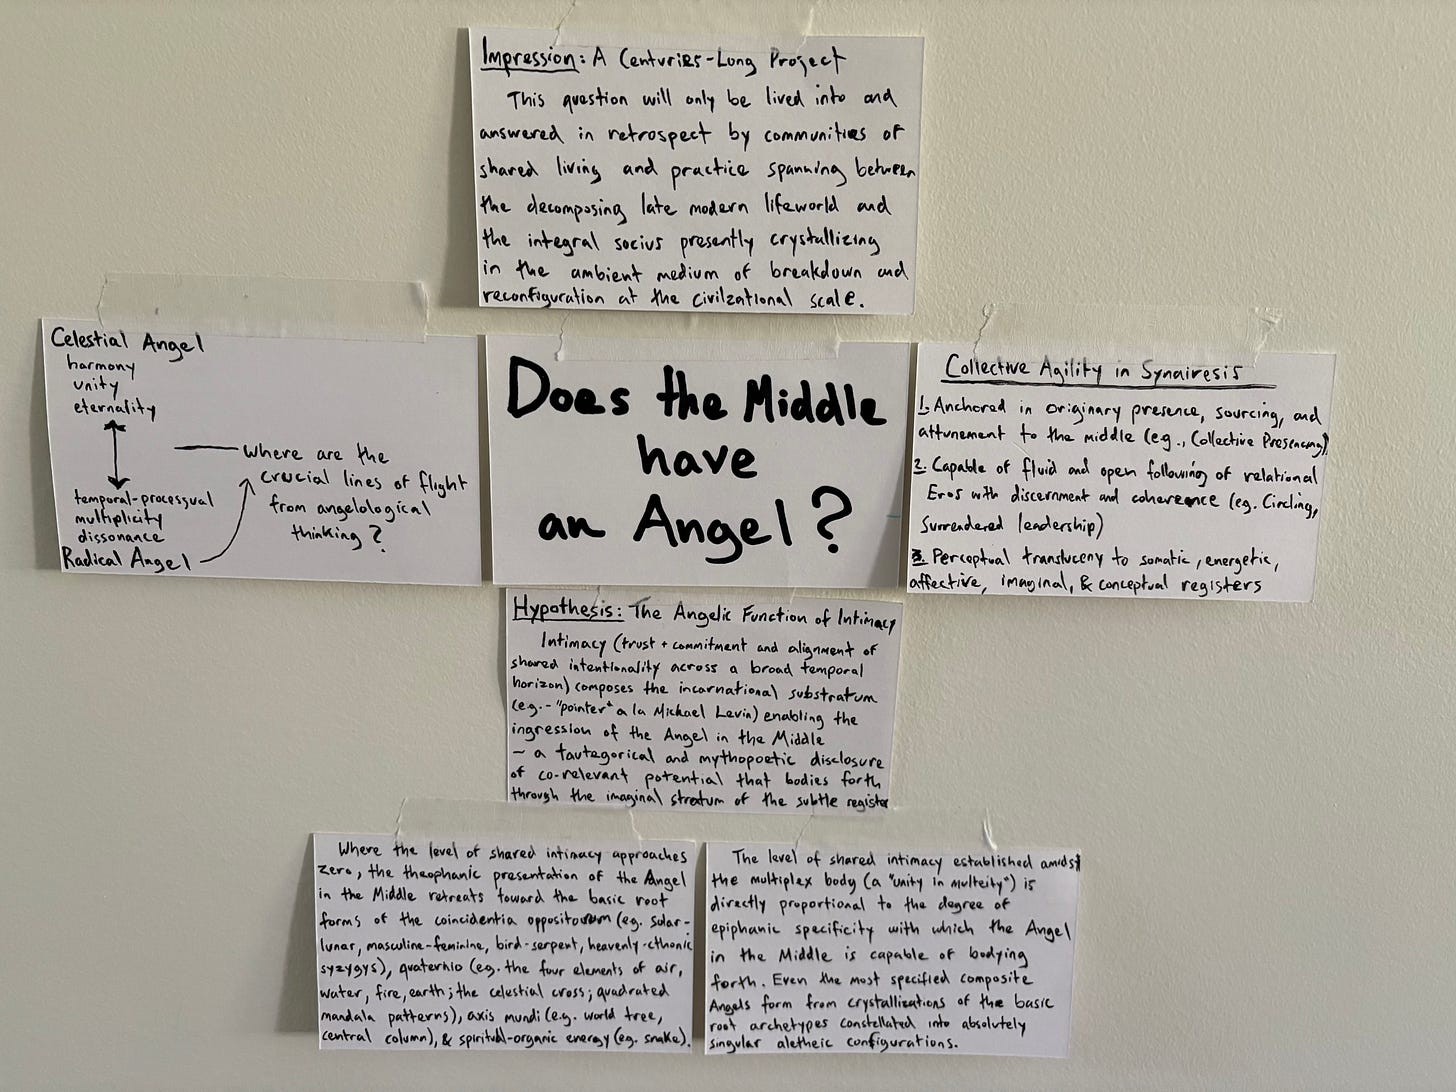 Impression: A Centuries-Long Project
This question will only be lived into and
answered in retrospect by communities of
shared living and practice spanning between
the decomposing late modern lifeworld and
the integral socius presently crystallizing
in the ambient medium of breakdown and
reconfiguration at the civilzational scale.
Celestial Angel
harmony
unity
eternality
temporal-processual
multiplicity
dissonance
Radical Angel
where are the
crucial lines of flight
from angelological
thinking?
Does the Middle
have
an Angel?
Collective Agility in Synairesis
1. Anchored in originary presence, sourcing, and
attunement to the middle (e.g., Collective Presencing)
2. Capable of fluid and open following of relational
Eros with discernment and coherence (eg. Circling,
Surrendered leadership)
3. Perceptual transluceny to somatic, energetic,
affective, imaginal, & conceptual registers
Hypothesis: The Angelic Function of Intimacy
Intimacy (trust + commitment and alignment of
shared intentionality across a broad temporal
horizon) composes the incarnational substratum
(e.g.- "pointer" a la Michael Levin) enabling the
ingression of the Angel in the Middle
~ a tautegorical and mythopoetic disclosure
of co-relevant potential that bodies forth
through the imaginal stratum of the subtle register
Where the level of shared intimacy approaches
zero, the theophanic presentation of the Angel
in the Middle retreats toward the basic root
forms of the coincidentia oppositorum (eg. solar-
lunar, masculine-feminine, bird-serpent, heavenly-cthonic
syzygys), quaternio (eg. the four elements of air,
water, fire, earth; the celestial cross; quadrated
mandala patterns), axis mundi (e.g. world tree,
central column), & spiritual-organic energy (eg. snake).
The level of shared intimacy established amidst
the multiplex body (a "unity in multeity") is
directly proportional to the degree of
epiphanic specificity with which the Angel
in the Middle is capable of bodying
forth. Even the most specified composite
Angels form from crystallizations of the basic
root archetypes constellated into absolutely
singular aletheic configurations.